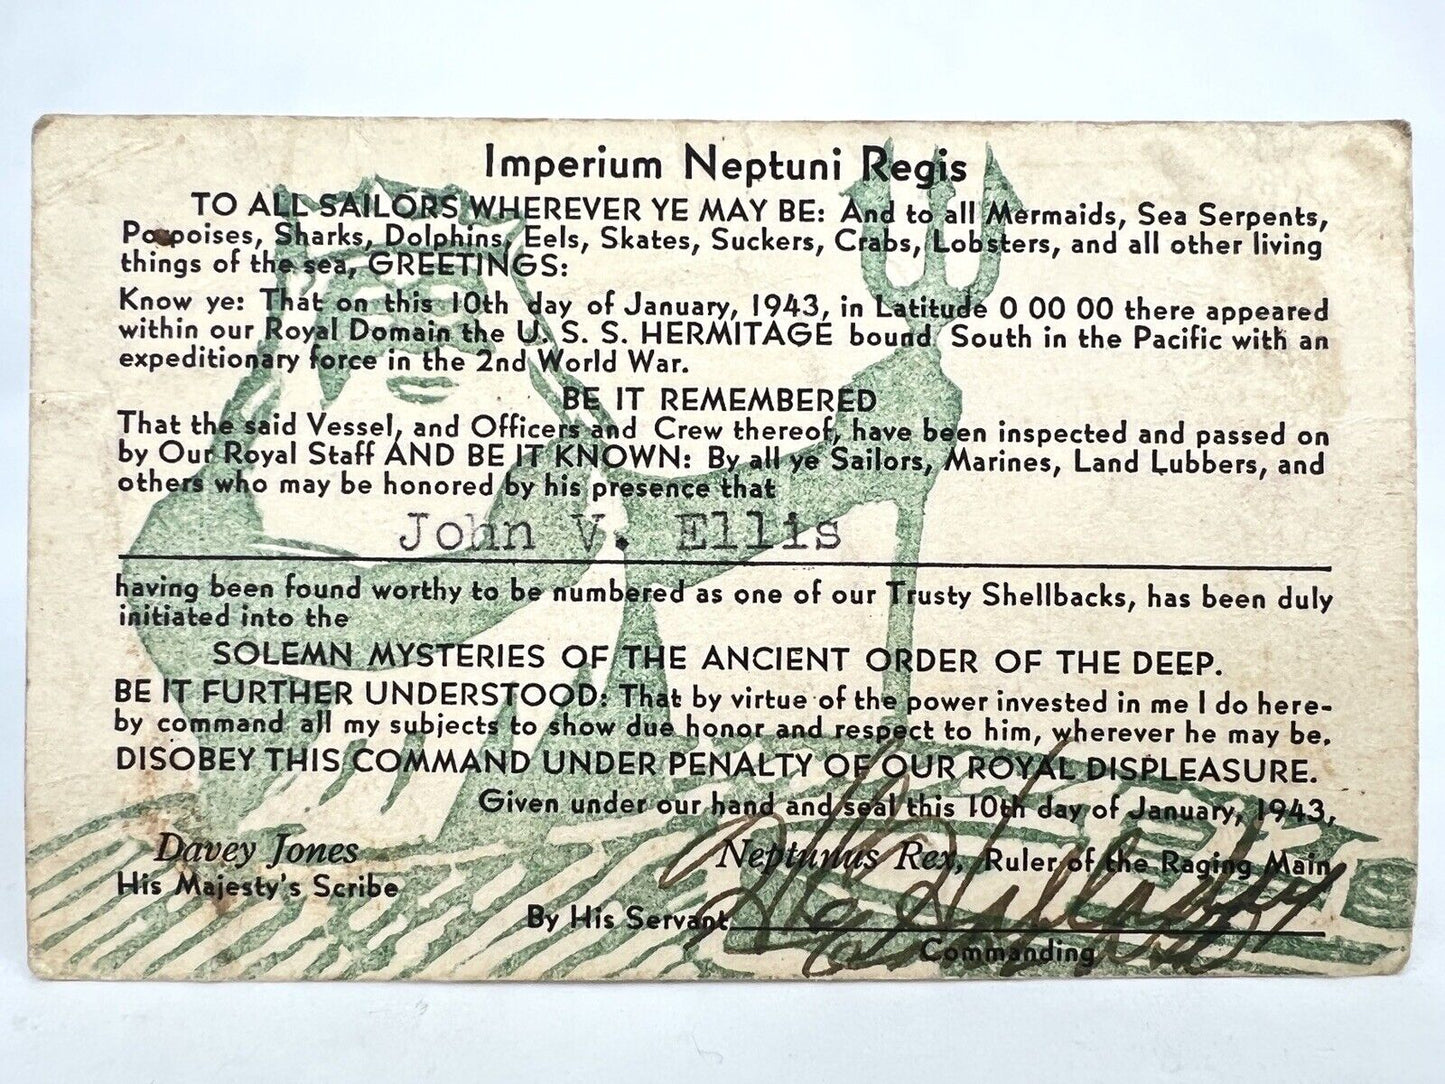 Imperium Neptuni Regis
TO ALL SAILORS WHEREVER YE MAY BE: And to all Mermaids, Sea Serpents,
Porpoises, Sharks, Dolphins, Eels, Skates, Suckers, Crabs, Lobsters, and all other living
things of the sea, GREETINGS:
Know ye: That on this 10th day of January, 1943, in Latitude 0 00 00 there appeared
within our Royal Domain the U. S. S. HERMITAGE bound South in the Pacific with an
expeditionary force in the 2nd World War.
BE IT REMEMBERED
That the said Vessel, and Officers and Crew thereof, have been inspected and passed on
by Our Royal Staff AND BE IT KNOWN: By all ye Sailors, Marines, Land Lubbers, and
others who may be honored by his presence that
John V. Ellis
having been found worthy to be numbered as one of our Trusty Shellbacks, has been duly
initiated into the
SOLEMN MYSTERIES OF THE ANCIENT ORDER OF THE DEEP.
BE IT FURTHER UNDERSTOOD: That by virtue of the power invested in me I do here-
by command all my subjects to show due honor and respect to him, wherever he may be.
DISOBEY THIS COMMAND UNDER PENALTY OF OUR ROYAL DISPLEASURE.
Given under our hand and seal this 10th day of January, 1943,
Davey Jones
His Majesty's Scribe
Neptunus Rex, Ruler of the Raging Main
By His Servant
Commanding